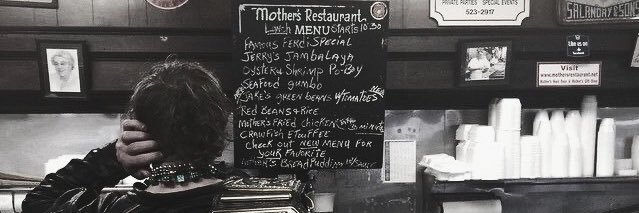 PRIVATE PARTIES SPECIAL EVENTS
523-2917
SALANDRA & SON
Mother's Restaurant
Lunch MENU STARTS 10:30
FAMOUS FERDI SPECIAL
JERRY'S JAMBALAYA
OYSTER & SHRIMP PO-BOY
SEAFOOD GUMBO
JAKE'S GREEN BEANS W/TOMATOES
RED BEANS & RICE
MOTHERS FRIED CHICKEN
CRAWFISH ETOUFFEE
CHECK OUT NEW MENU FOR
YOUR FAVORITE
BREAD PUDDING
this is on
Visit
www.mothersrestaurant.net